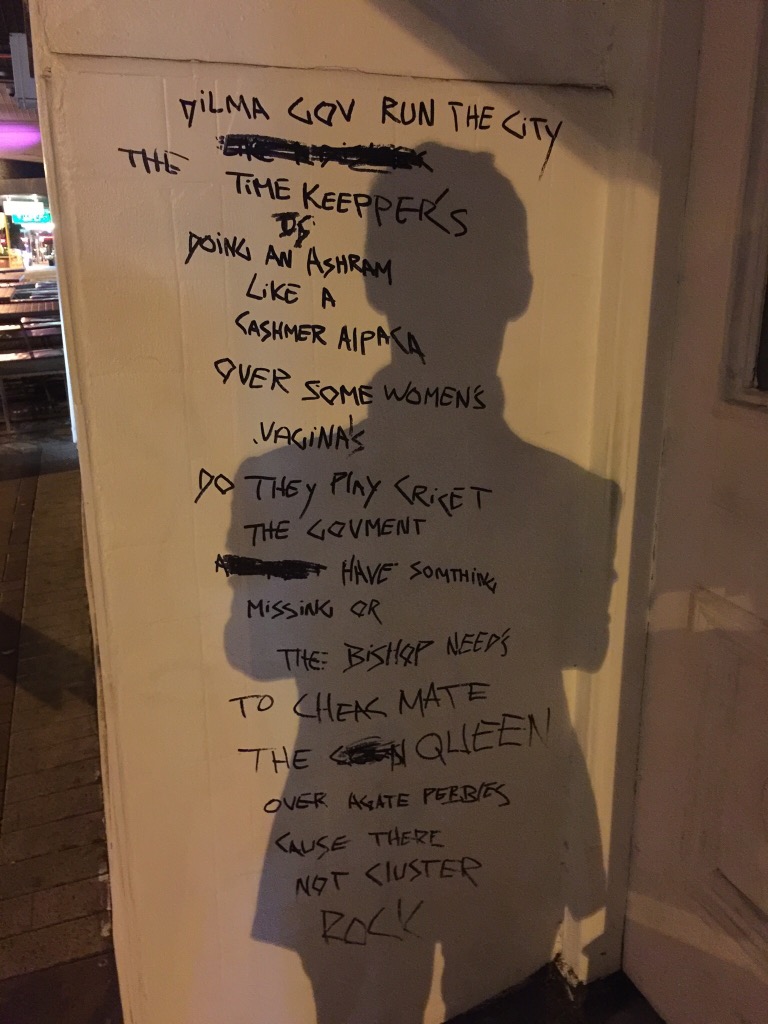 DiLMA GOV RUN THE CiTY
THE
TiME KEEPPER'S
IS
DOING AN ASHRAM
LiKE A
CASHMER AlPACA
OVER SOME WOMEN'S
VAGINA'S
DO THEY PlAY CRiCET
THE GOVMENT
HAVE SOMTHiNG
MiSSiNG OR
THE BiSHOP NEED'S
TO CHEAC MATE
THE QUEEN
OVER AGATE PEBBlES
CAUSE THERE
NOT ClUSTER
ROCK